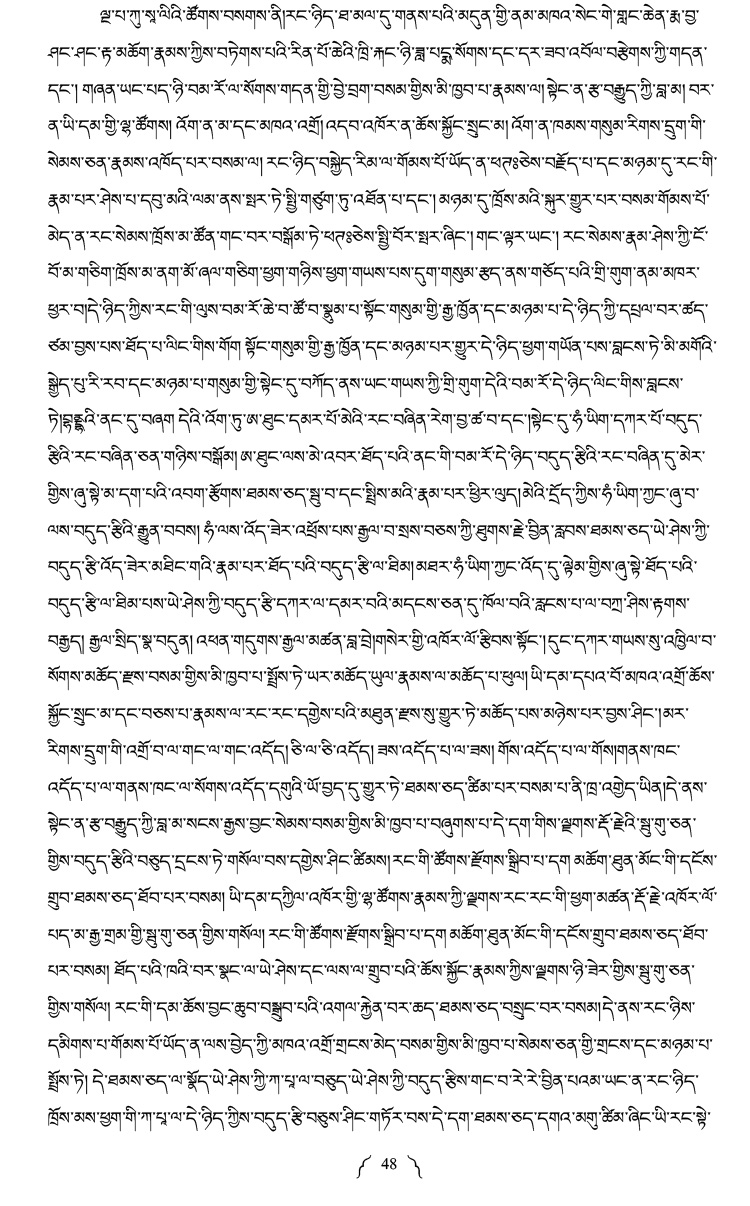 ལྔ་པ་ཀུ་སཱ་ལིའི་ཚོགས་བསགས་ནི།རང་ཉིད་ཐ་མལ་དུ་གནས་པའི་མདུན་གྱི་ནམ་མཁའ་སེང་གེ་གླང་ཆེན་རྨ་བྱ་
ཤང་ཤང་རྟ་མཆོག་རྣམས་ཀྱིས་བཏེགས་པའི་རིན་པོ་ཆེའི་ཁྲི་རྐང་ཉི་ཟླ་པདྨ་སོགས་དང་དར་ཟབ་འབོལ་བརྩེགས་ཀྱི་གདན་
དང་། གཞན་ཡང་པད་ཉི་བམ་རོ་ལ་སོགས་གདན་གྱི་བྱེ་བྲག་བསམ་གྱིས་མི་ཁྱབ་པ་རྣམས་ལ། སྟེང་ན་རྩ་བརྒྱུད་ཀྱི་བླ་མ། བར་
ན་ཡི་དམ་གྱི་ལྷ་ཚོགས། འོག་ན་མ་དང་མཁའ་འགྲོ། འདབ་འཁོར་ན་ཆོས་སྐྱོང་སྲུང་མ། འོག་ན་ཁམས་གསུམ་རིགས་དྲུག་གི་
སེམས་ཅན་རྣམས་འཁོད་པར་བསམ་ལ། རང་ཉིད་བསྐྱེད་རིམ་ལ་གོམས་པོ་ཡོད་ན་ཕཊཿཅེས་བརྗོད་པ་དང་མཉམ་དུ་རང་གི་
རྣམ་པར་ཤེས་པ་དབུ་མའི་ལམ་ནས་སྤར་ཏེ་སྤྱི་གཙུག་ཏུ་འཐོན་པ་དང་། མཉམ་དུ་ཁྲོས་མའི་སྐུར་གྱུར་པར་བསམ་གོམས་པོ་
མེད་ན་རང་སེམས་ཁྲོས་མ་ཚོན་གང་བར་བསྒོམ་ཏེ་ཕཊཿཅེས་སྤྱི་བོར་སྤར་ཞིང་། གང་ལྟར་ཡང་། རང་སེམས་རྣམ་ཤེས་ཀྱི་ངོ་
བོ་མ་གཅིག་ཁྲོས་མ་ནག་མོ་ཞལ་གཅིག་ཕྱག་གཉིས་ཕྱག་གཡས་པས་དུག་གསུམ་རྩད་ནས་གཅོད་པའི་གྲི་གུག་ནམ་མཁར་
ཕྱར་བ།དེ་ཉིད་ཀྱིས་རང་གི་ལུས་བམ་རོ་ཆེ་བ་ཚོ་བ་སྣུམ་པ་སྟོང་གསུམ་གྱི་རྒྱ་ཁྱོན་དང་མཉམ་པ་དེ་ཉིད་ཀྱི་དཔྲལ་བར་ཚད་
ཙམ་བྱས་པས་ཐོད་པ་ལིང་གིས་གོག སྟོང་གསུམ་གྱི་རྒྱ་ཁྱོན་དང་མཉམ་པར་གྱུར་དེ་ཉིད་ཕྱག་གཡོན་པས་བླངས་ཏེ་མི་མགོའི་
སྒྱེད་པུ་རི་རབ་དང་མཉམ་པ་གསུམ་གྱི་སྟེང་དུ་བཀོད་ནས་ཡང་གཡས་ཀྱི་གྲི་གུག་དེའི་བམ་རོ་དེ་ཉིད་ལིང་གིས་བླངས་
ཏེ།བྷནྡྷའི་ནང་དུ་བཞག དེའི་འོག་ཏུ་ཨ་ཐུང་དམར་པོ་མེའི་རང་བཞིན་རེག་བྱ་ཚ་བ་དང་།སྟེང་དུ་ཧཾ་ཡིག་དཀར་པོ་བདུད་
རྩིའི་རང་བཞིན་ཅན་གཉིས་བསྒོམ། ཨ་ཐུང་ལས་མེ་འབར་ཐོད་པའི་ནང་གི་བམ་རོ་དེ་ཉིད་བདུད་རྩིའི་རང་བཞིན་དུ་མེར་
གྱིས་ཞུ་སྟེ་མ་དག་པའི་འབག་རྩོགས་ཐམས་ཅད་སྦུ་བ་དང་སྤྲིས་མའི་རྣམ་པར་ཕྱིར་ལུད། མེའི་དྲོད་ཀྱིས་ཧཾ་ཡིག་ཀྱང་ཞུ་བ་
ལས་བདུད་རྩིའི་རྒྱུན་བབས། ཧཾ་ལས་འོད་ཟེར་འཕྲོས་པས་རྒྱལ་བ་སྲས་བཅས་ཀྱི་ཐུགས་རྗེ་བྱིན་རླབས་ཐམས་ཅད་ཡེ་ཤེས་ཀྱི་
བདུད་རྩི་འོད་ཟེར་མཐིང་གའི་རྣམ་པར་ཐོད་པའི་བདུད་རྩི་ལ་ཐིམ།མཐར་ཧཾ་ཡིག་ཀྱང་འོད་དུ་ལྟེམ་གྱིས་ཞུ་སྟེ་ཐོད་པའི་
བདུད་རྩི་ལ་ཐིམ་པས་ཡེ་ཤེས་ཀྱི་བདུད་རྩི་དཀར་ལ་དམར་བའི་མདངས་ཅན་དུ་ཁོལ་བའི་རླངས་པ་ལ་བཀྲ་ཤིས་རྟགས་
བརྒྱད། རྒྱལ་སྲིད་སྣ་བདུན། འཕན་གདུགས་རྒྱལ་མཚན་བླ་བྲེ།གསེར་གྱི་འཁོར་ལོ་རྩིབས་སྟོང་། དུང་དཀར་གཡས་སུ་འཁྱིལ་བ་
སོགས་མཆོད་རྫས་བསམ་གྱིས་མི་ཁྱབ་པ་སྤྲོས་ཏེ་ཡར་མཆོད་ཡུལ་རྣམས་ལ་མཆོད་པ་ཕུལ། ཡི་དམ་དཔའ་བོ་མཁའ་འགྲོ་ཆོས་
སྐྱོང་སྲུང་མ་དང་བཅས་པ་རྣམས་ལ་རང་རང་དགྱེས་པའི་མཐུན་རྫས་སུ་གྱུར་ཏེ་མཆོད་པས་མཉེས་པར་བྱས་ཤིང་། མར་
རིགས་དྲུག་གི་འགྲོ་བ་ལ་གང་ལ་གང་འདོད། ཅི་ལ་ཅི་འདོད། ཟས་འདོད་པ་ལ་ཟས། གོས་འདོད་པ་ལ་གོས།གནས་ཁང་
འདོད་པ་ལ་གནས་ཁང་ལ་སོགས་འདོད་དགུའི་ཡོ་བྱད་དུ་གྱུར་ཏེ་ཐམས་ཅད་ཚིམ་པར་བསམ་པ་ནི་ཁྲ་འགྱེད་ཡིན།དེ་ནས་
སྟེང་ན་རྩ་བརྒྱུད་ཀྱི་བླ་མ་སངས་རྒྱས་བྱང་སེམས་བསམ་གྱིས་མི་ཁྱབ་པ་བཞུགས་པ་དེ་དག་གིས་ལྗགས་རྡོ་རྗེའི་སྦུ་གུ་ཅན་
གྱིས་བདུད་རྩིའི་བཅུད་དྲངས་ཏེ་གསོལ་བས་དགྱེས་ཤིང་ཚིམས། རང་གི་ཚོགས་རྫོགས་སྒྲིབ་པ་དག མཆོག་ཐུན་མོང་གི་དངོས་
གྲུབ་ཐམས་ཅད་ཐོབ་པར་བསམ། ཡི་དམ་དཀྱིལ་འཁོར་གྱི་ལྷ་ཚོགས་རྣམས་ཀྱི་ལྗགས་རང་རང་གི་ཕྱག་མཚན་རྡོ་རྗེ་འཁོར་ལོ་
པད་མ་རྒྱ་གྲམ་གྱི་སྦུ་གུ་ཅན་གྱིས་གསོལ། རང་གི་ཚོགས་རྫོགས་སྒྲིབ་པ་དག མཆོག་ཐུན་མོང་གི་དངོས་གྲུབ་ཐམས་ཅད་ཐོབ་
པར་བསམ། ཐོད་པའི་ཁའི་བར་སྣང་ལ་ཡེ་ཤེས་དང་ལས་ལ་གྲུབ་པའི་ཆོས་སྐྱོང་རྣམས་ཀྱིས་ལྗགས་ཉི་ཟེར་གྱིས་སྦུ་གུ་ཅན་
གྱིས་གསོལ། རང་གི་དམ་ཆོས་བྱང་ཆུབ་བསྒྲུབ་པའི་འགལ་རྐྱེན་བར་ཆད་ཐམས་ཅད་བསྲུང་བར་བསམ།དེ་ནས་རང་ཉིས་
དམིགས་པ་གོམས་པོ་ཡོད་ན་ལས་བྱེད་ཀྱི་མཁའ་འགྲོ་གྲངས་མེད་བསམ་གྱིས་མི་ཁྱབ་པ་སེམས་ཅན་གྱི་གྲངས་དང་མཉམ་པ་
སྤྲོས་ཏེ། དེ་ཐམས་ཅད་ལ་སྣོད་ཡེ་ཤེས་ཀྱི་ཀ་པཱ་ལ་བཅུད་ཡེ་ཤེས་ཀྱི་བདུད་རྩིས་གང་བ་རེ་རེ་བྱིན་པའམ་ཡང་ན་རང་ཉིད་
ཁྲོས་མས་ཕྱག་གི་ཀ་པཱ་ལ་དེ་ཉིད་ཀྱིས་བདུད་རྩི་བཅུས་ཤིང་གཏོར་བས་དེ་དག་ཐམས་ཅད་དགའ་མགུ་ཚིམ་ཞིང་ཡི་རང་སྟེ་
48